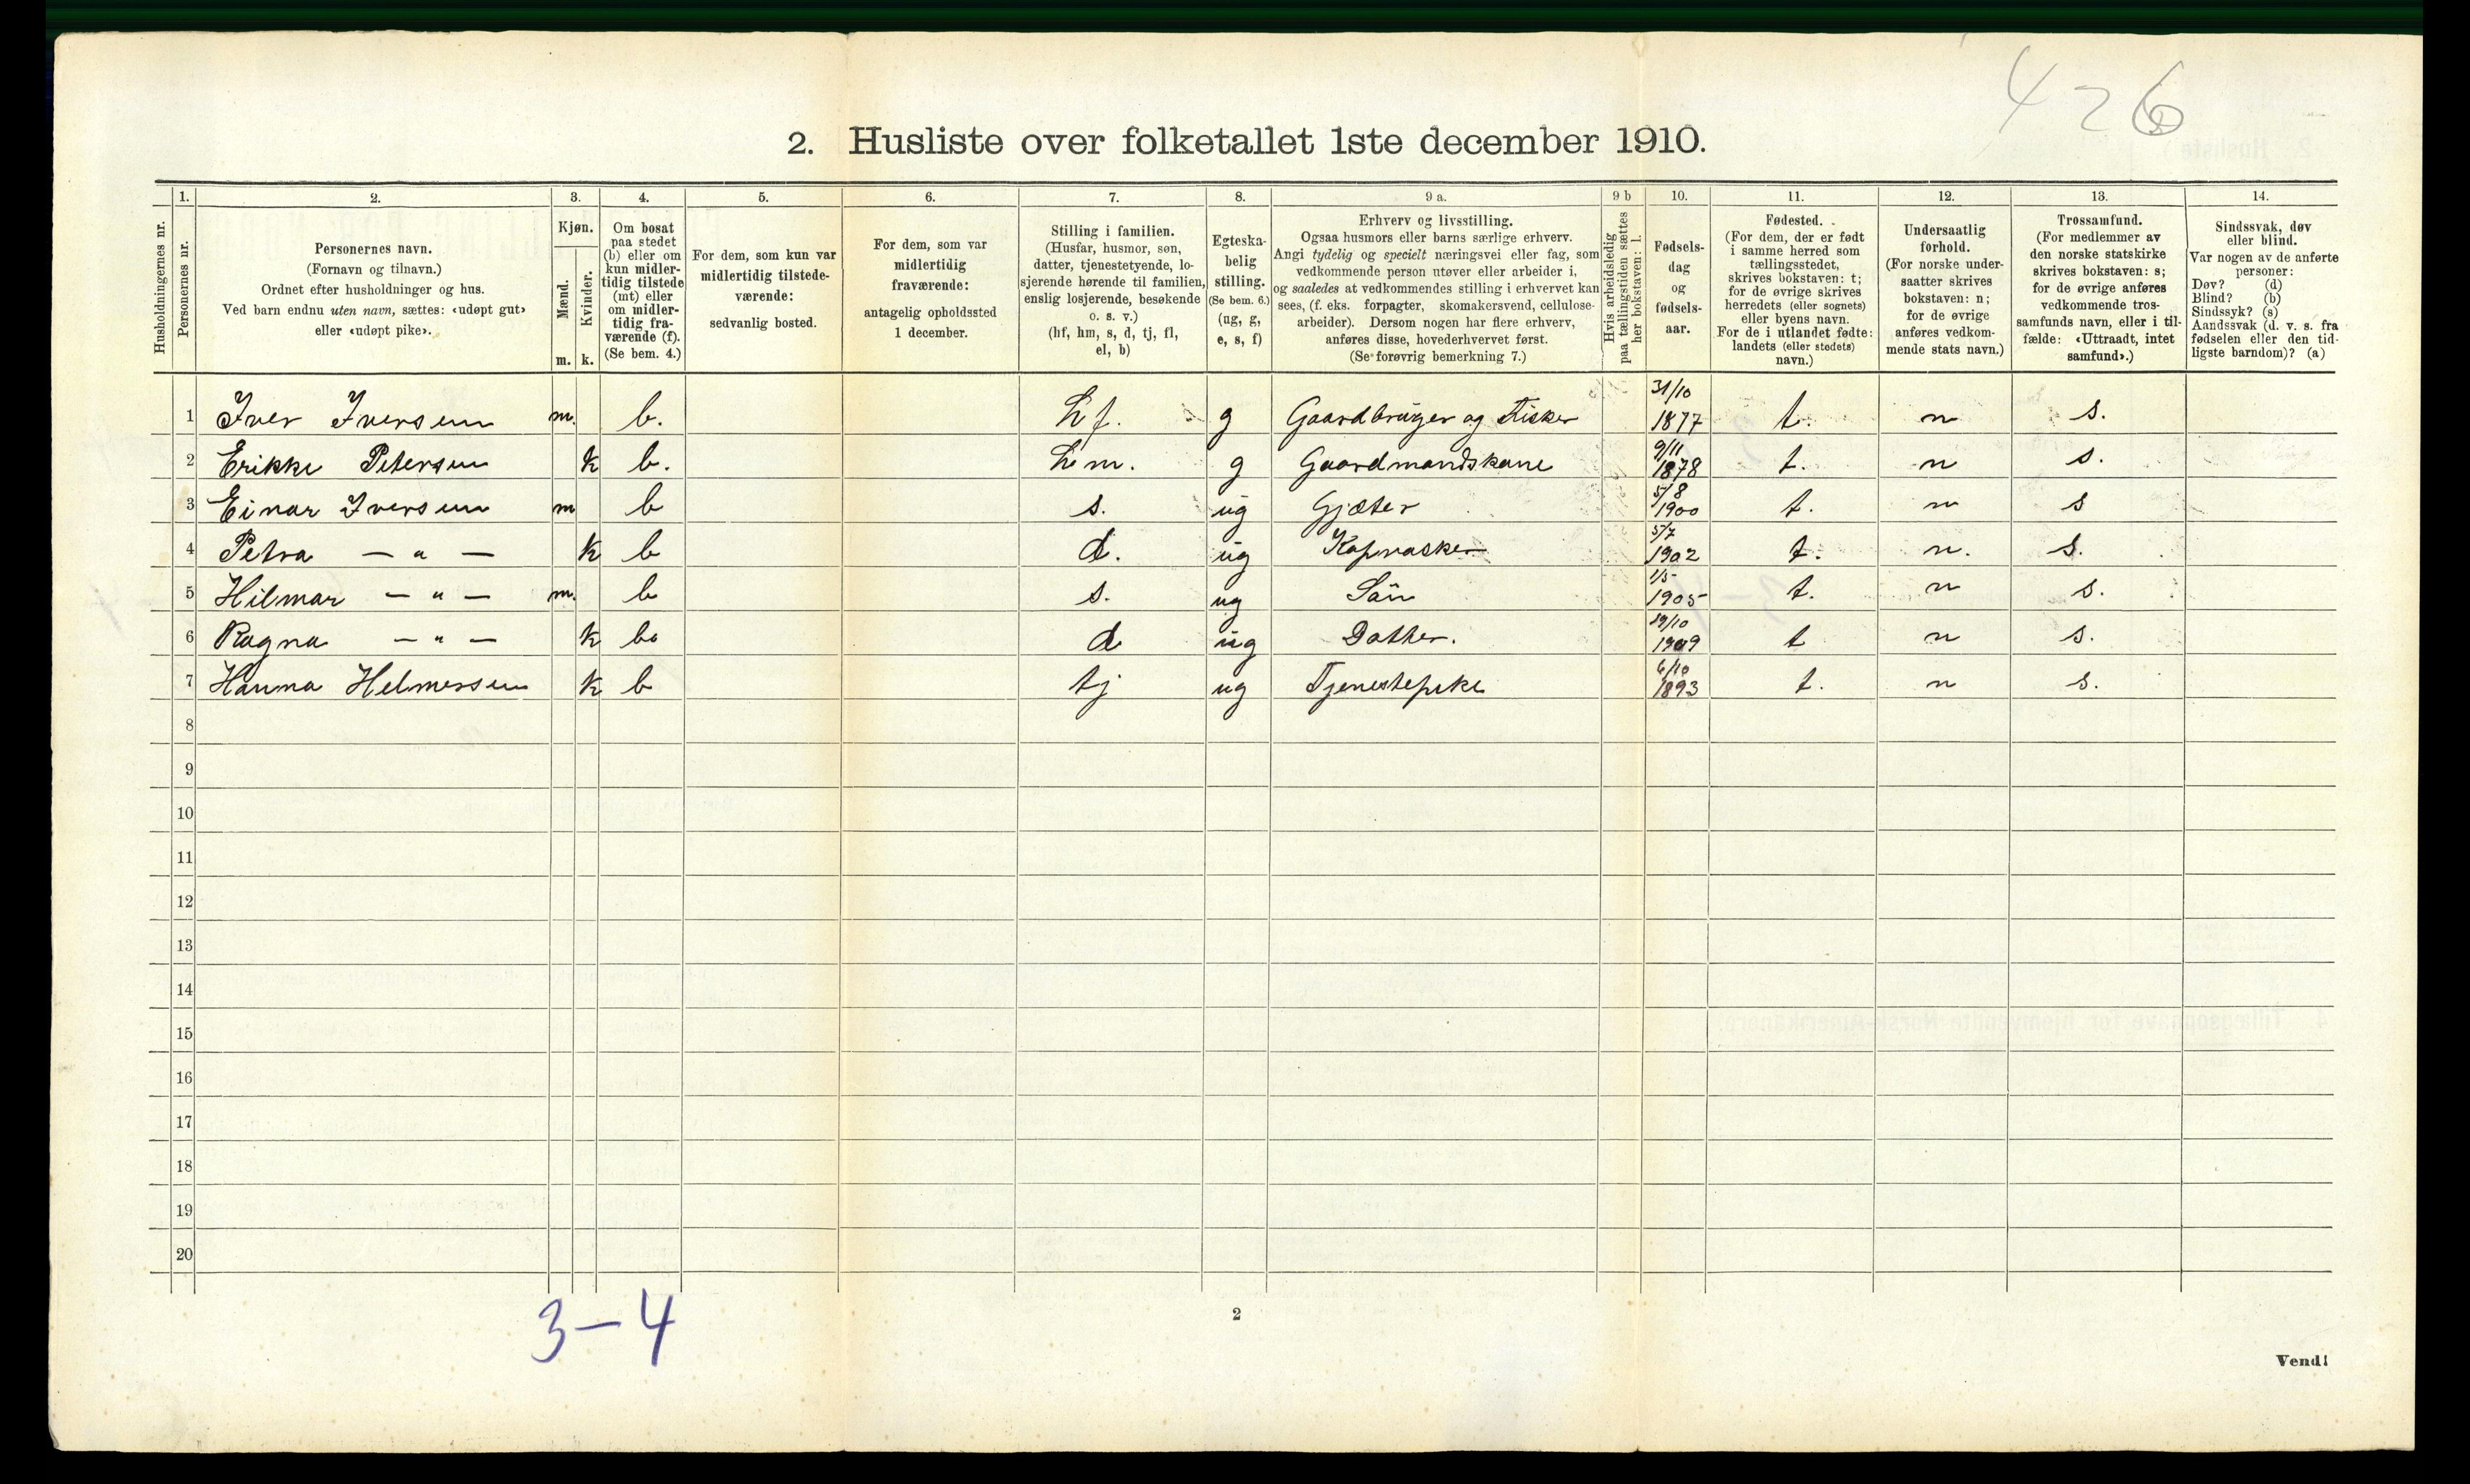 426
2. Husliste over folketallet 1ste december 1910.
Husholdningernes nr.
1.
Personernes nr.
2.
Personernes navn.
(Fornavn og tilnavn.)
Ordnet efter husholdninger og hus.
Ved barn endnu uten navn, sættes: «udøpt gut»
eller «udøpt pike».
3.
Kjøn.
Mænd.
Kvinder.
m. k.
4.
Om bosat
paa stedet
(b) eller om
kun midler-
tidig tilstede
(mt) eller
om midler-
tidig fra-
værende (f).
(Se bem. 4.)
5.
For dem, som kun var
midlertidig tilstede-
værende:
sedvanlig bosted.
6.
For dem, som var
midlertidig
fraværende:
antagelig opholdssted
1 december.
7.
Stilling i familien.
(Husfar, husmor, søn,
datter, tjenestetyende, lo-
sjerende hørende til familien,
enslig losjerende, besøkende
o. s. v.)
(hf, hm, s, d, tj, fl,
el, b)
8.
Egteska-
belig
stilling.
(Se bem. 6.)
(ug, g,
e, s, f)
9 a.
Erhverv og livsstilling.
Ogsaa husmors eller barns særlige erhverv.
Angi tydelig og specielt næringsvei eller fag, som
vedkommende person utøver eller arbeider i,
og saaledes at vedkommendes stilling i erhvervet kan
sees, (f. eks. forpagter, skomakersvend, cellulose-
arbeider). Dersom nogen har flere erhverv,
anføres disse, hovederhvervet først.
(Se forøvrig bemerkning 7.)
9 b
Hvis arbeidsledig
paa tællingstiden sættes
her bokstaven: l.
10.
Fødsels-
dag
og
fødsels-
aar.
11.
Fødested.
(For dem, der er født
i samme herred som
tællingsstedet,
skrives bokstaven: t;
for de øvrige skrives
herredets (eller sognets)
eller byens navn.
For de i utlandet fødte:
landets (eller stedets)
navn.)
12.
Undersaatlig
forhold.
(For norske under-
saatter skrives
bokstaven: n;
for de øvrige
anføres vedkom-
mende stats navn.)
13.
Trossamfund.
(For medlemmer av
den norske statskirke
skrives bokstaven: s;
for de øvrige anføres
vedkommende tros-
samfunds navn, eller i til-
fælde: «Uttraadt, intet
samfund».)
14.
Sindssvak, døv
eller blind.
Var nogen av de anførte
personer:
Døv? (d)
Blind? (b)
Sindssyk? (s)
Aandssvak (d. v. s. fra
fødselen eller den tid-
ligste barndom)? (a)
1 Iver Iversen m. b. hf. g Gaardbruger og Fisker 31/10 1877 t. n s.
2 Erikke Petersen k b. hm. g Gaardmandskone 9/11 1878 t. n s.
3 Einar Iversen m b s. ug Gjæter 5/8 1900 t. n s
4 Petra — " — k b d. ug Kopvasker 5/7 1902 t. n. s.
5 Hilmar — " — m. b s. ug Sön 1/5 1905 t. n s.
6 Ragna — " — k b d ug Dotter. 19/10 1909 t n s.
7 Hanna Helmersen k b tj ug Tjenestepike 6/10 1893 t. n s.
8
9
10
11
12
13
14
15
16
17
18
19
20
3–4
2
Vend!